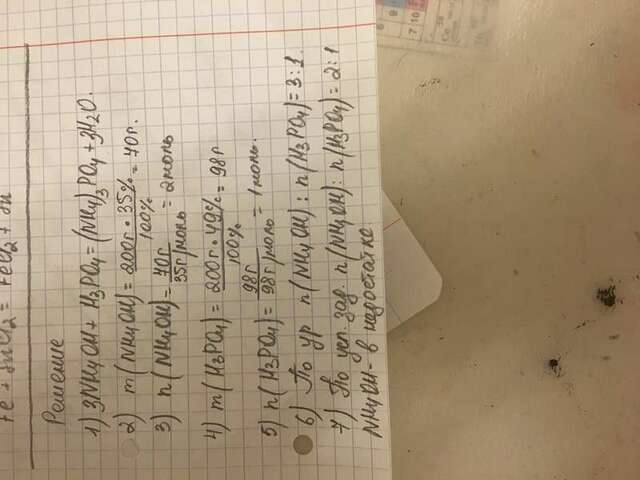 Fe + SnCl2 = FeCl2 + Sn
Решение
1) 3NH4OH + H3PO4 = (NH4)3PO4 + 3H2O.
2) m(NH4OH) = 200г · 35% / 100% = 70г.
3) n(NH4OH) = 70г / 35г/моль = 2моль
4) m(H3PO4) = 200г · 49% / 100% = 98г
5) n(H3PO4) = 98г / 98г/моль = 1моль.
6) По ур n(NH4OH) : n(H3PO4) = 3:1
7) По усл. зад. n(NH4OH) : n(H3PO4) = 2:1
NH4OH - в недостатке